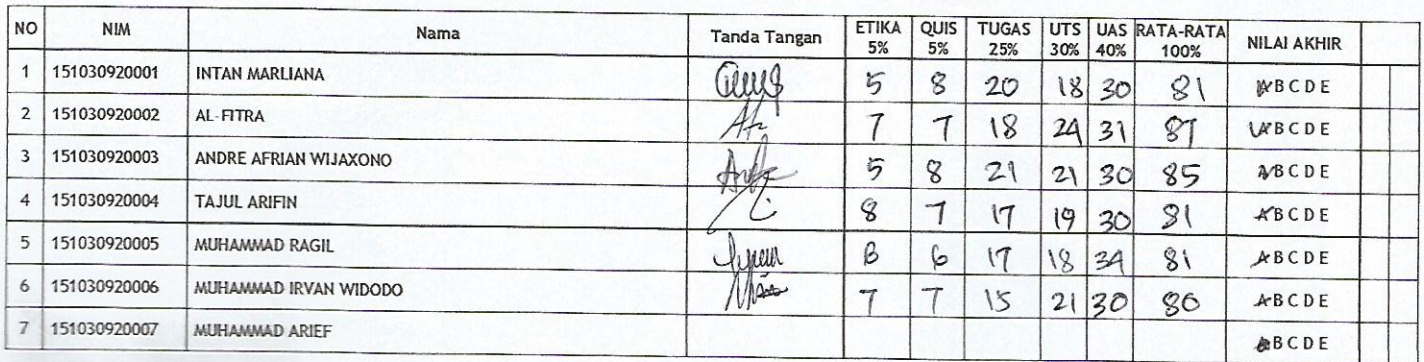 NO NIM Nama Tanda Tangan ETIKA 5% QUIS 5% TUGAS 25% UTS 30% UAS 40% RATA-RATA 100% NILAI AKHIR
1 151030920001 INTAN MARLIANA 5 8 20 18 30 81 A B C D E
2 151030920002 AL-FITRA 7 7 18 24 31 87 A B C D E
3 151030920003 ANDRE AFRIAN WIJAXONO 5 8 21 21 30 85 A B C D E
4 151030920004 TAJUL ARIFIN 8 7 17 19 30 81 A B C D E
5 151030920005 MUHAMMAD RAGIL 6 6 17 18 34 81 A B C D E
6 151030920006 MUHAMMAD IRVAN WIDODO 7 7 15 21 30 80 A B C D E
7 151030920007 MUHAMMAD ARIEF A B C D E